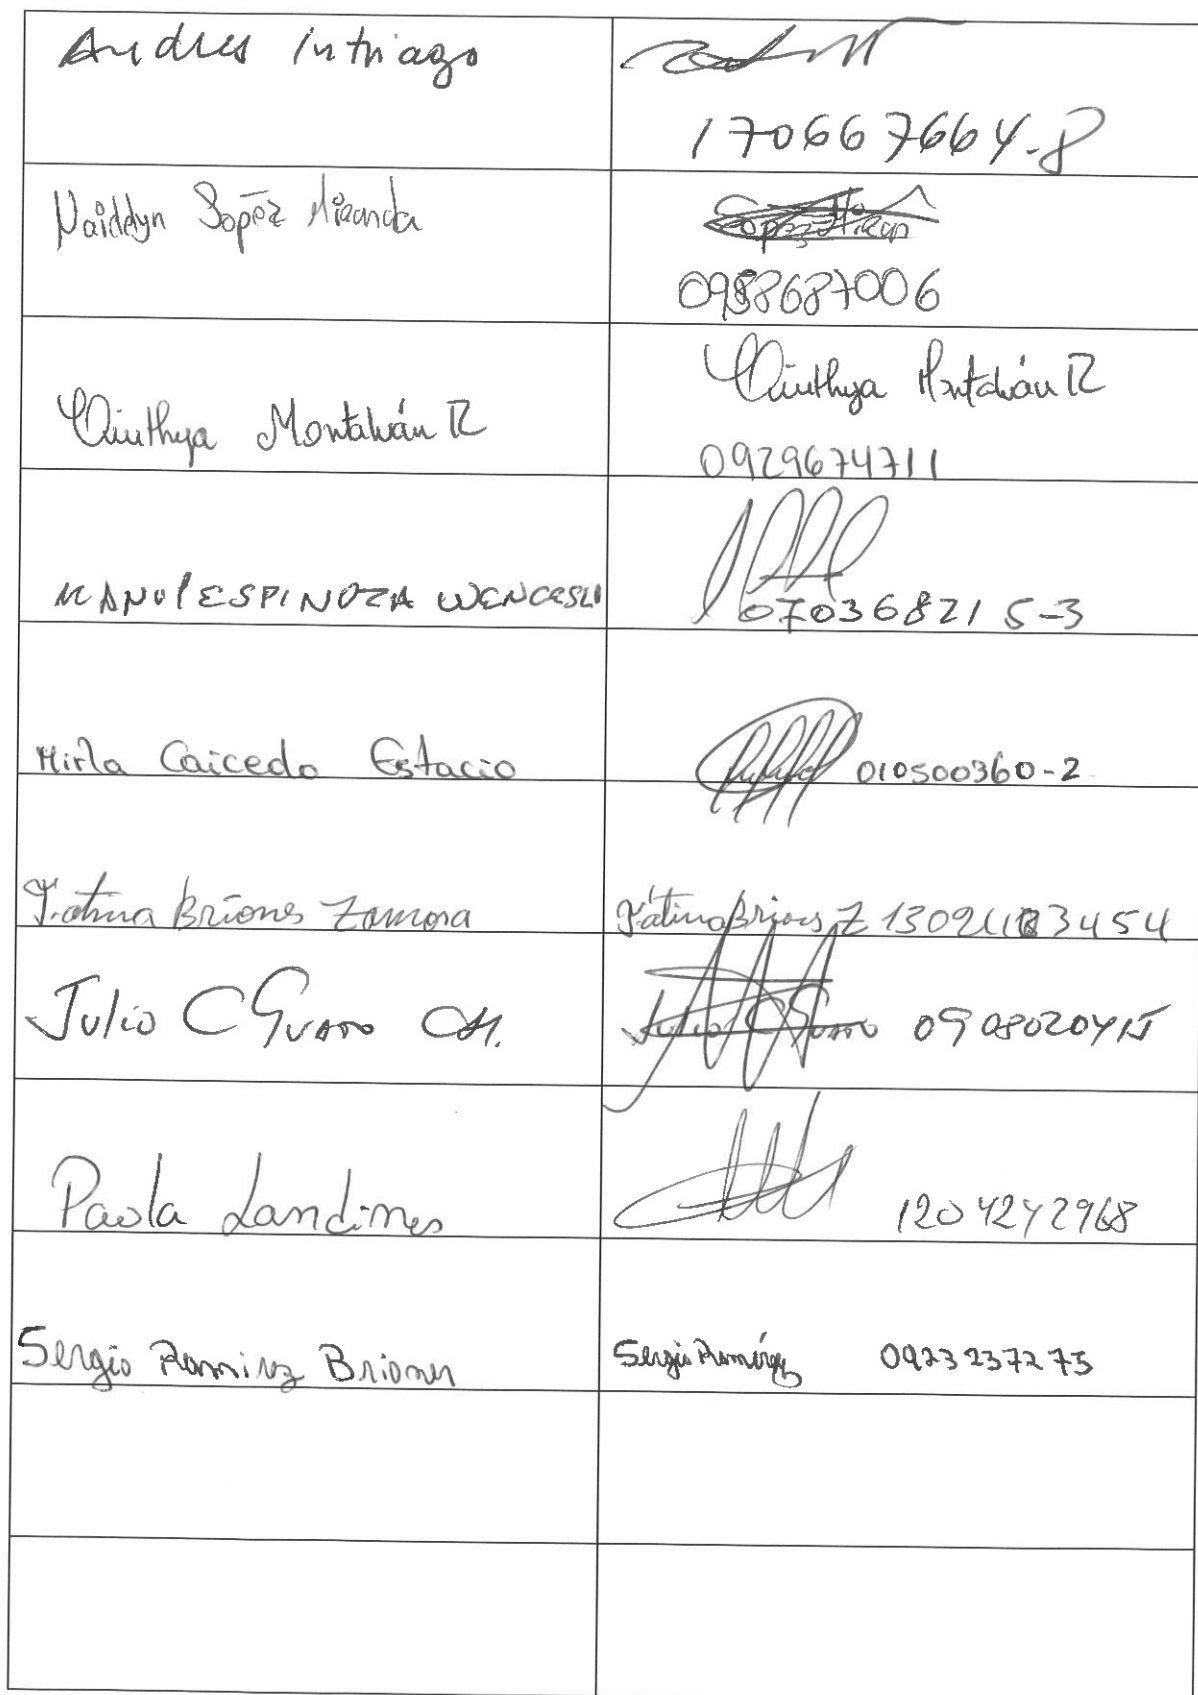 Andres Intriago
170667664-8
Naiddyn Lopez Miranda
0988687006
Cinthya Montalván R
Cinthya Montalván R
0929674711
MANUEL ESPINOZA WENCESLA
070368215-3
Mirla Caicedo Estacio
010500360-2
Fatima Briones Zamora
Fátima Briones Z
Julio C Guano CH.
Julio C Guano
Paola Landines
1204242968
Sergio Ramirez Briones
Sergio Ramírez 0923237275